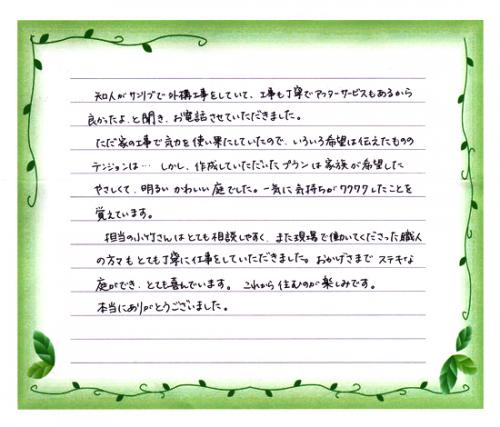 知人がサンリブで外構工事をしていて、工事も丁寧でアフターサービスもあるから
良かったよ、と聞き、お電話させていただきました。
ただ家の工事で気力を使い果たしていたので、いろいろ希望は伝えたものの
テンションは… しかし、作成していただいたプランは家族が希望した
やさしくて、明るい かわいい庭でした。一気に気持ちがワクワクしたことを
覚えています。
担当の小竹さんはとても相談しやすく、また現場で働いてくださった職人
の方々もとても丁寧に仕事をしていただきました。おかげさまで ステキな
庭ができ、とても喜んでいます。これから住むのが楽しみです。
本当にありがとうございました。